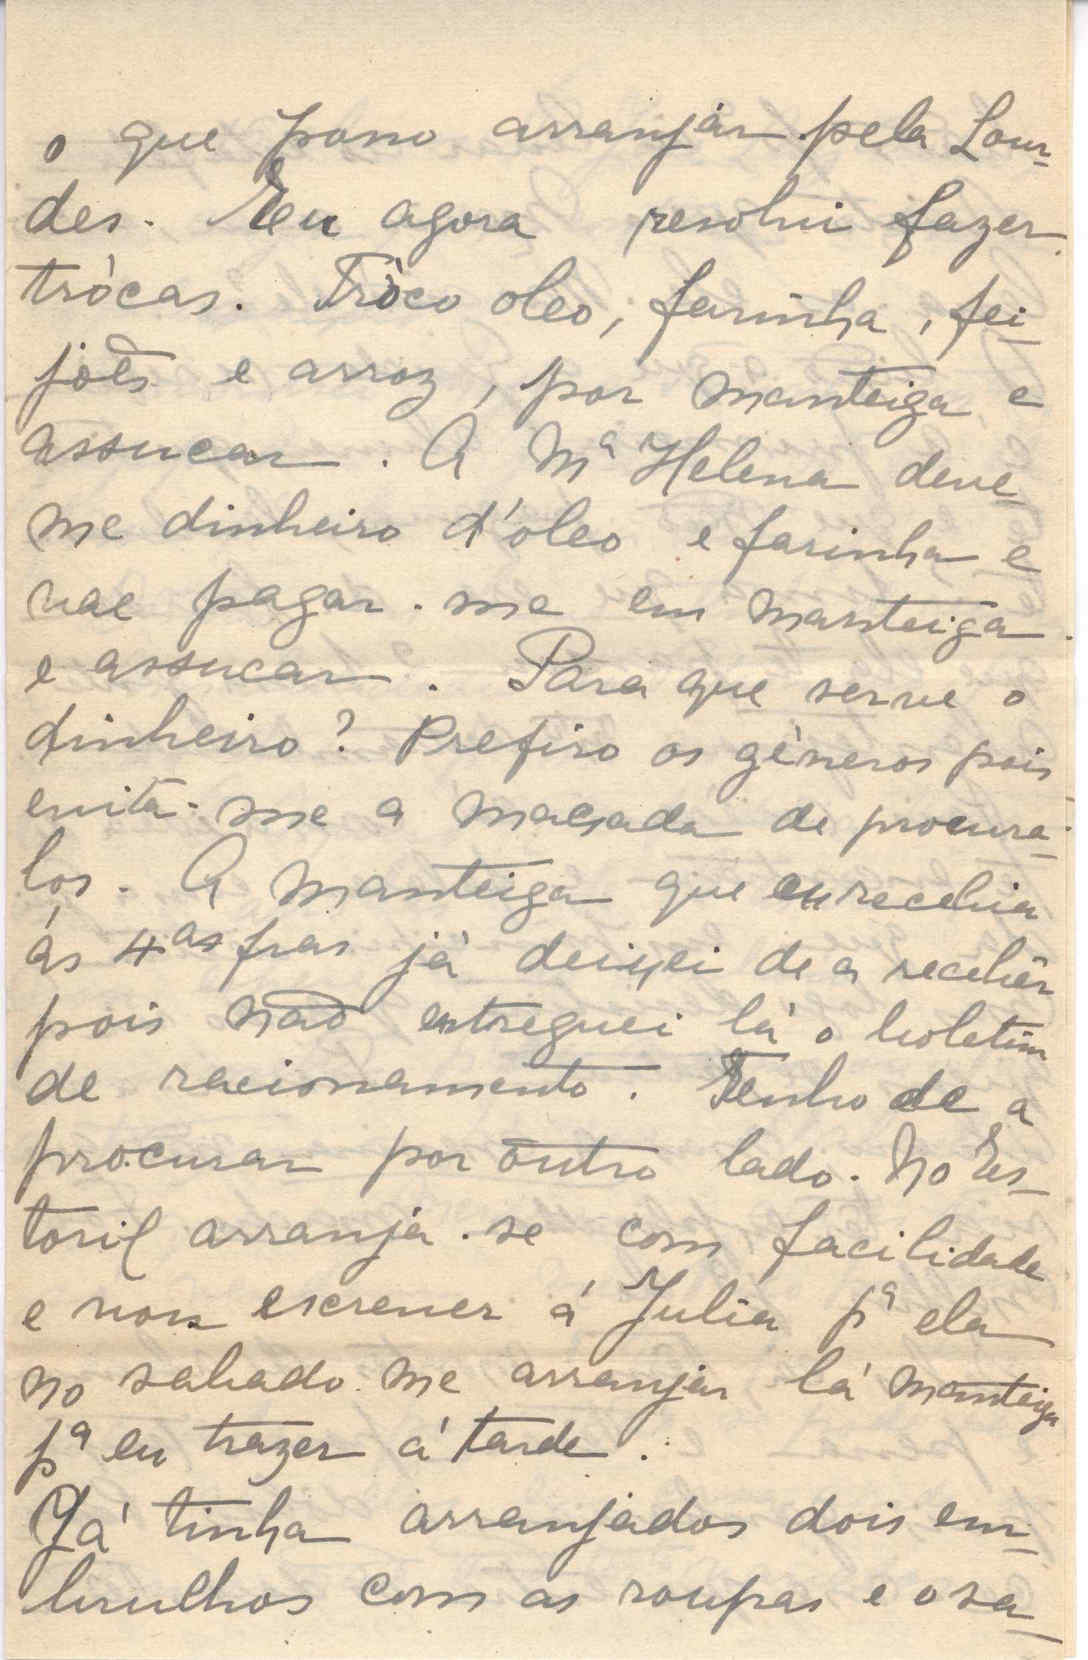 o que posso arranjár pela Lour-
des. Eeu agora resolvi fazer
trócas. Tròco oleo, farinha, fei-
joẽs e arroz, por manteiga e
assucar. A Mª Helena deve-
me dinheiro d'oleo e farinha e
vae pagar-me em manteiga
e assucar. Para que serve o
dinheiro? Prefiro os gèneros pois
evita-me a maçada de procura-
los. A manteiga que eu recebia
ás 4as fras já deixei de a recebêr
pois não entreguei lá o boletim
de racionamento. Tenho de a
procurar por outro lado. No Es-
toril arranja-se com facilidade
e vou escrever á Julia pª ela
no sabado me arranjar lá manteiga
pª eu trazer á tarde.
Já tinha arranjados dois em-
brulhos com as roupas e o sa-